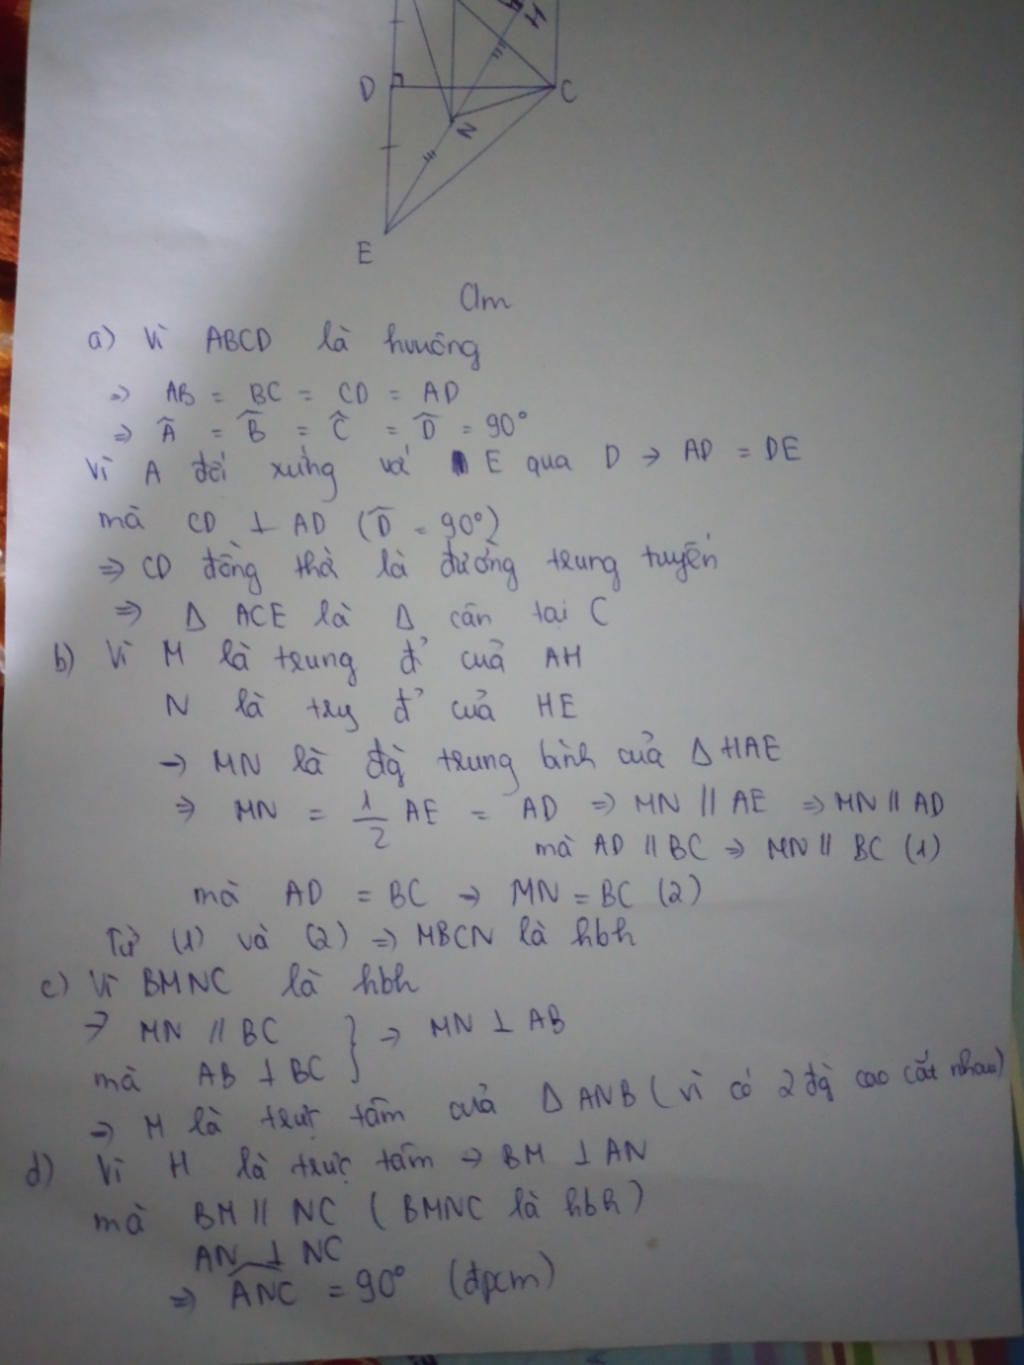 H
D
C
N
E
Cm
a) Vì ABCD là hvuông
=> AB = BC = CD = AD
=> Â = B̂ = Ĉ = D̂ = 90°
Vì A đối xứng với E qua D → AD = DE
mà CD ⊥ AD (D̂ = 90°)
=> CD đồng thời là đường trung tuyến
=> Δ ACE là Δ cân tại C
b) Vì M là trung đ' của AH
N là trg đ' của HE
→ MN là đg trung bình của Δ HAE
=> MN = 1/2 AE = AD => MN // AE => MN // AD
mà AD // BC → MN // BC (1)
mà AD = BC → MN = BC (2)
Từ (1) và (2) => MBCN là hbh
c) Vì BMNC là hbh
=> MN // BC } → MN ⊥ AB
mà AB ⊥ BC
→ M là trực tâm của Δ ANB (vì có 2 đg cao cắt nhau)
d) Vì M là trực tâm → BM ⊥ AN
mà BM // NC (BMNC là hbh)
AN ⊥ NC
=> ANC = 90° (đpcm)